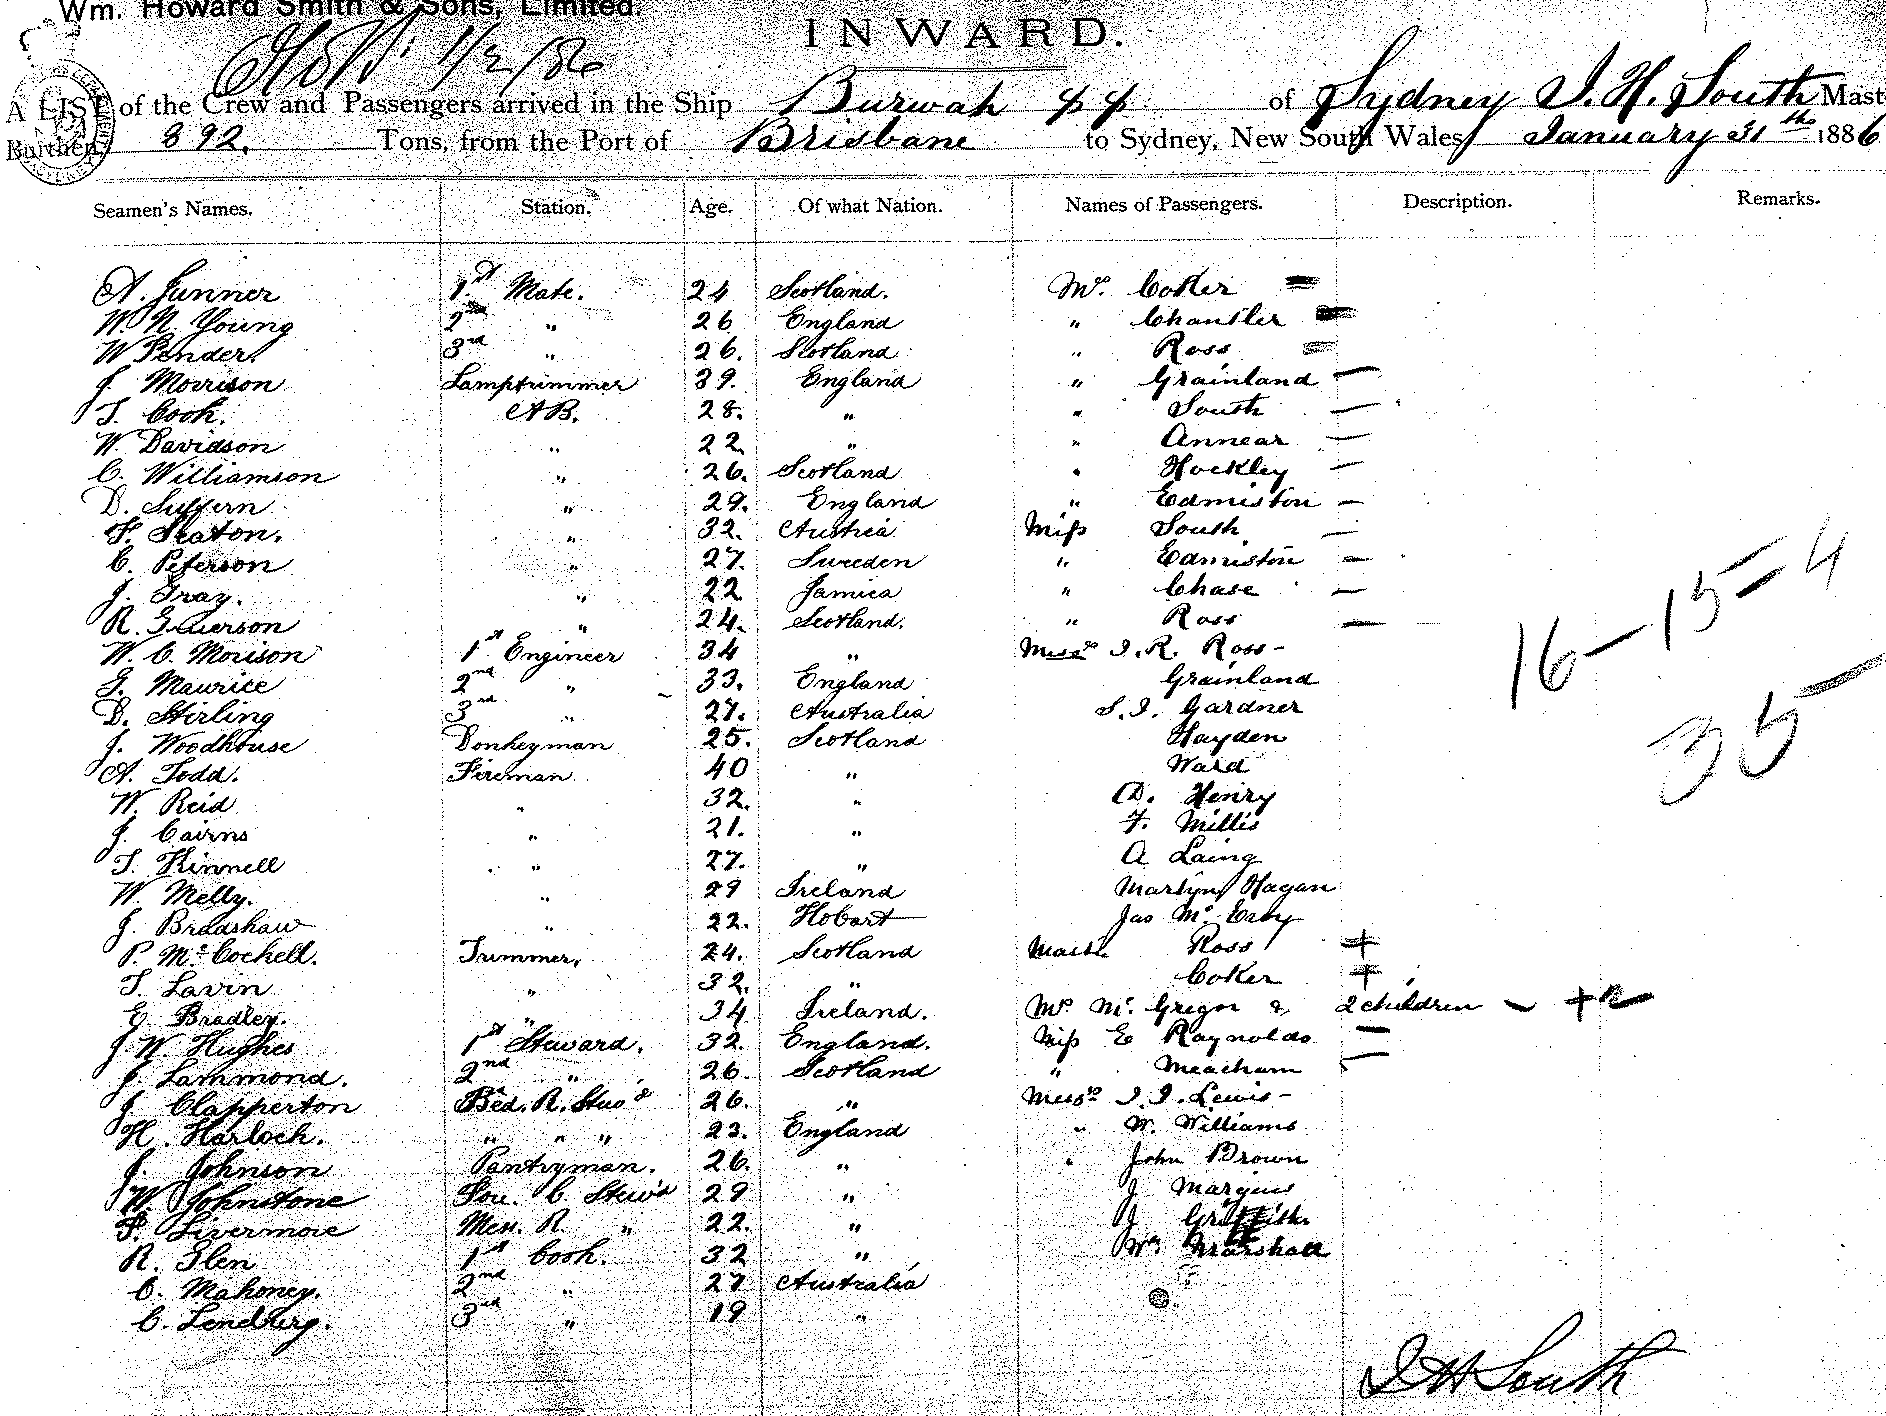 Wm. Howard Smith & Sons, Limited
1/2/86
INWARD.
A LIST of the Crew and Passengers arrived in the Ship Burwah SS of Sydney J. H. South Mast
Burthen 892. Tons, from the Port of Brisbane to Sydney, New South Wales January 31th 1886
Seamen's Names. Station. Age. Of what Nation. Names of Passengers. Description. Remarks.
A. Junner 1st Mate. 24 Scotland. Mrs. Coker =
W. N. Young 2nd " 26 England " Chantler
W Pender. 3rd " 26. Scotland " Ross =
J. Morrison Lamptrimmer 39. England " Grainland —
T. Cook. AB. 28. " " South —
W. Davidson " 22. " " Annear —
C. Williamson " 26. Scotland " Hockley —
D. Suffern " 29. England " Edmiston —
F. Seaton. " 32. Austria Miss South —
C. Peterson " 27. Sweden " Edmiston —
J. Gray. " 22 Jamica " Chase —
R. " 24. Scotland. " Ross —
W. C. Morison 1st Engineer 34 " Messrs J. R. Ross -
J. Maurice 2nd " 33. England Grainland
D. Stirling 3rd " 27. Australia S. J. Gardner
J. Woodhouse Donkeyman 25. Scotland Hayden
A. Todd. Fireman 40 " Ward
W. Reid " 32. " D. Henry
J. Cairns " 21. " F. Millis
T. Kinnell " 27. " A Laing
W. Melly. " 29 Ireland Martyn Hagan
J. Bradshaw " 22. Hobart Jas Mc
P. Mc Cochell. Trimmer, 24. Scotland Mast. Ross +
T. Lavin " 32. " Coker +
E. Bradley. " 34 Ireland. Mrs Mc Gregor & 2 children — + 2
J W Hughes 1st Steward. 32. England. Miss E Raynolds —
J. Lammond. 2nd " 26. Scotland " Meacham —
J Clapperton Bed. R. Stwd 26. " Messrs J. J. Lewis -
H. Harloch. " " " 23. England " W. Williams
J. Johnson Pantryman. 26. " " John Brown
W. Johnstone C. Stewd 29 " J Marquis
F. Livermore Mess. R " 22. " J Griffith.
R. Glen 1st Cook. 32 " Wm Marshall
C. Mahoney. 2nd " 27 Australia
C. Lendberg. 3rd " 19 "
16 - 15 - 4
35
J H South